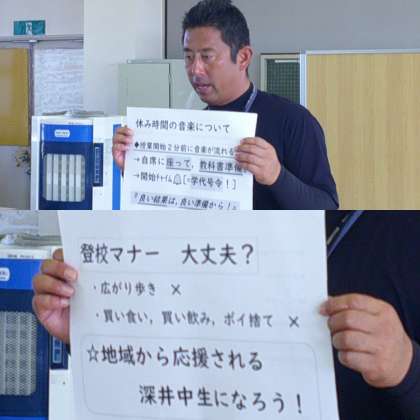 休み時間の音楽について
◆授業開始2分前に音楽が流れる
→自席に座って，教科書準備
→開始ﾁｬｲﾑ[=学代号令！]
良い結果は，良い準備から！
登校マナー　大丈夫？
・広がり歩き　×
・買い食い，買い飲み，ポイ捨て　×
☆地域から応援される
深井中生になろう！